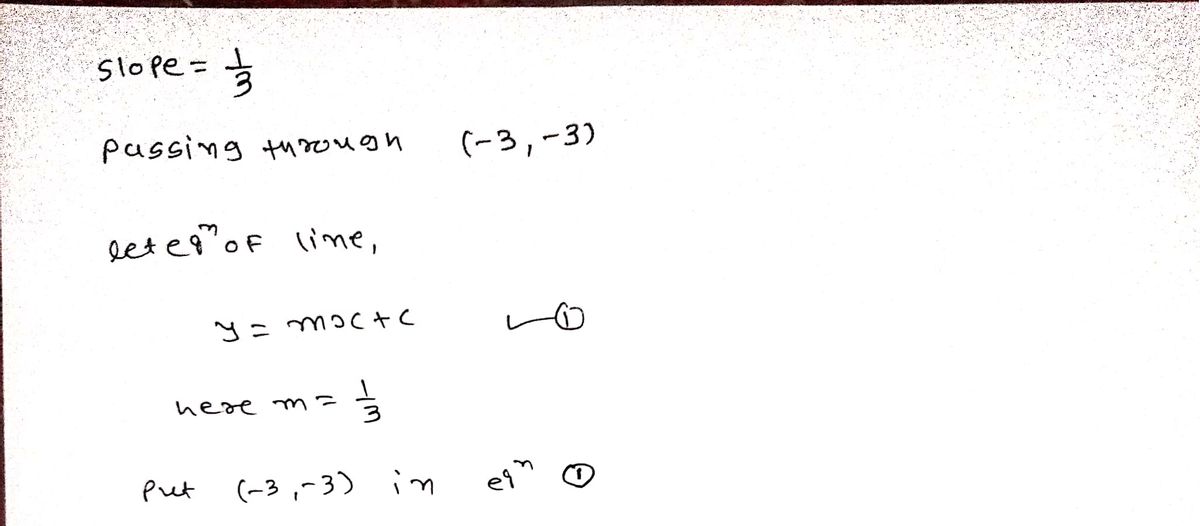 slope = 1/3
passing through (-3,-3)
let eqⁿ of line,
y = mx+c —①
here m = 1/3
Put (-3,-3) in eqⁿ ①